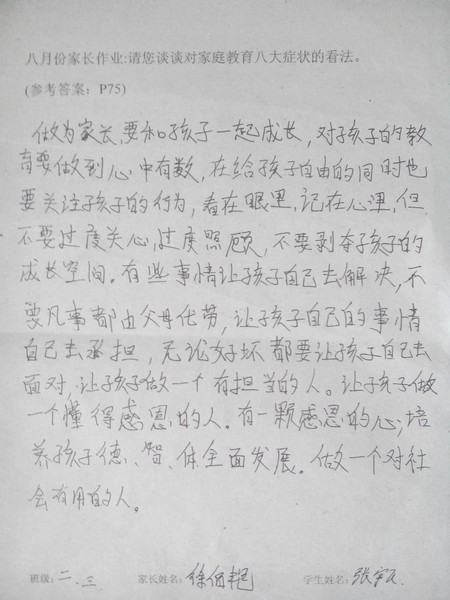 八月份家长作业:请您谈谈对家庭教育八大症状的看法。
(参考答案：P75)
做为家长,要和孩子一起成长,对孩子的教
育要做到心中有数,在给孩子自由的同时也
要关注孩子的行为,看在眼里,记在心里,但
不要过度关心,过度照顾,不要剥夺孩子的
成长空间。有些事情让孩子自己去解决,不
要凡事都由父母代劳,让孩子自己的事情
自己去承担,无论好坏都要让孩子自己去
面对,让孩子做一个有担当的人。让孩子做
一个懂得感恩的人。有一颗感恩的心;培
养孩子德、智、体全面发展。做一个对社
会有用的人。
班级:二.三 家长姓名:徐 艳 学生姓名:张宇